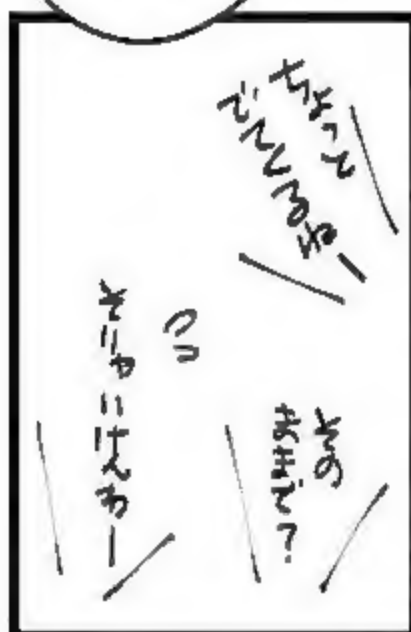 ちょっと
でてくるねー
その
ままで?
つっ
そりゃいけんわー